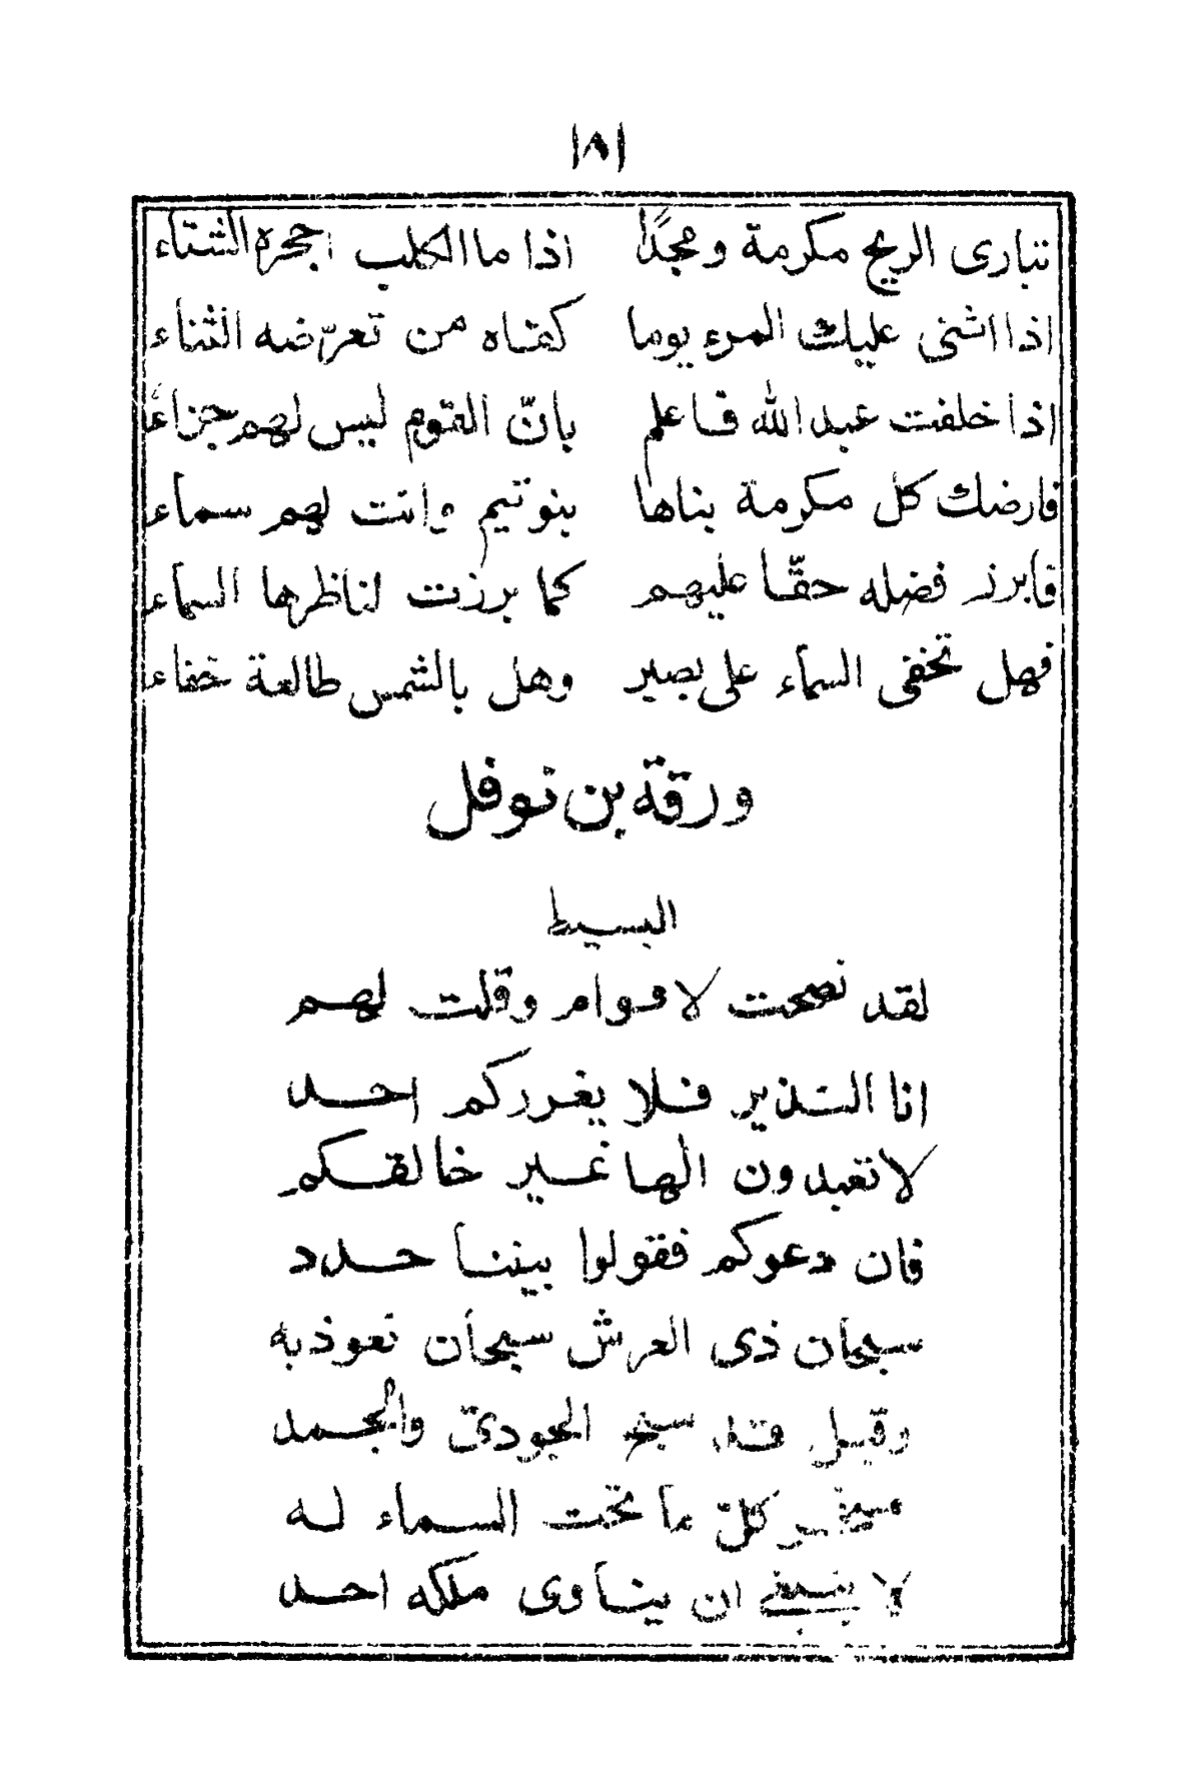 ١٨١
تبارى الريح مكرمة ومجدًا اذا ما الكلب اجحره الشتاء
اذا اثنى عليك المرء يوما كفاه من تعرّضه الثناء
اذا خلفت عبد الله فاعلم بانّ القوم ليس لهم جزاء
فارضك كل مكرمة بناها بنو تيم وانت لهم سماء
فابرز فضله حقّا عليهم كما برزت لناظرها السماء
فهل تخفى السماء على بصير وهل بالشمس طالعة خفاء
ورقة بن نوفل
البسيط
لقد نصحت لاقوام وقلت لهم
انا النذير فلا يغرركم احد
لا تعبدون الها غير خالقكم
فان دعوكم فقولوا بيننا حدد
سبحان ذى العرش سبحان نعوذ به
وقبل قد سبح الجودىّ والجمد
مسخر كلّ ما تحت السماء له
لا ينبغى ان يناوى ملكه احد